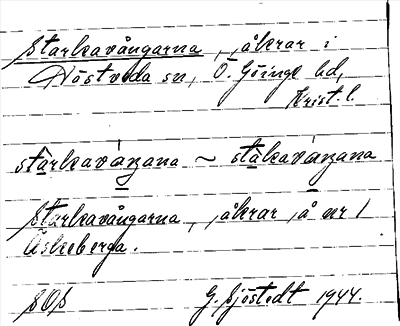 Starkavångarna, åkrar i
Hästveda sn, Ö. Göinge hd,
Krist. l.
stạ̊rkaváŋana ~ stạ̊kaváŋana
Starkavångarna, åkrar å nr 1
Askeberga.
SOS G. Sjöstedt 1944.